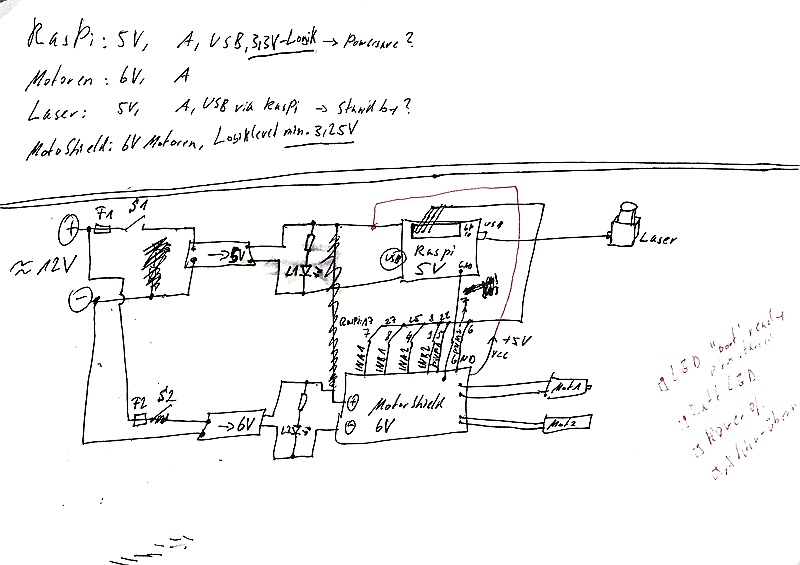 RasPi: 5V, A, USB, 3,3V-Logik → Powersave?
Motoren: 6V, A
Laser: 5V, A, USB via Raspi → Standby?
MotoShield: 6V Motoren, Logiklevel min. 3,25V
F1 S1
+
≈ 12V
−
→5V
L1
USB
Raspi
5V
GND
USB
Laser
Raspi: 17 27
7 8
INA1
INB1
INA2
INB2
GND
+5V
VCC
F2 S2
→6V
L2
+
MotorShield
−
6V
Mot1
Mot2
LED "boot" ready
LED